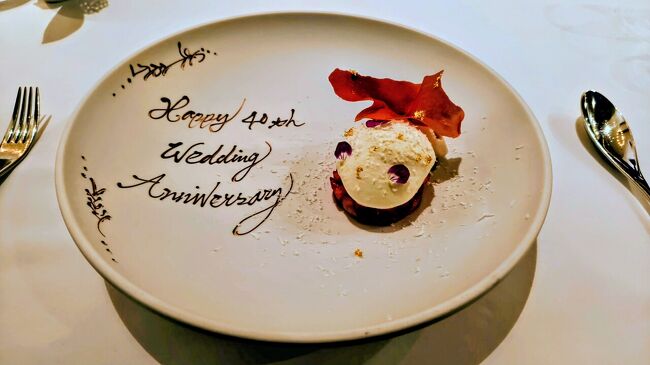 Happy 40th
Wedding
Anniversary